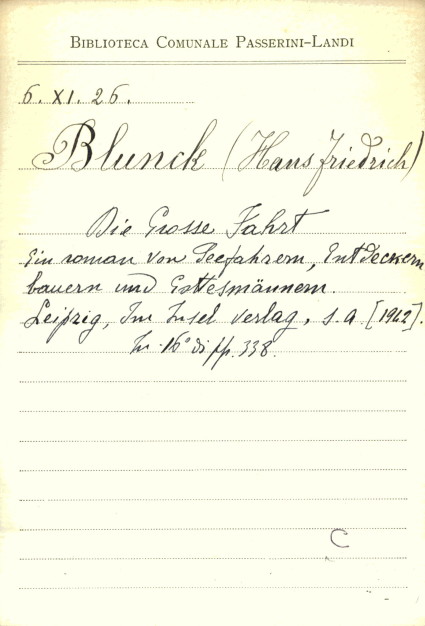 BIBLIOTECA COMUNALE PASSERINI-LANDI
6. XI. 26.
Blunck (Hans Friedrich)
Die Grosse Fahrt
Ein roman von Seefahrern, Entdeckern
bauern und Gottesmännern.
Leipzig, Im Insel Verlag, s. a [1942].
In 16° di pp. 338.
C